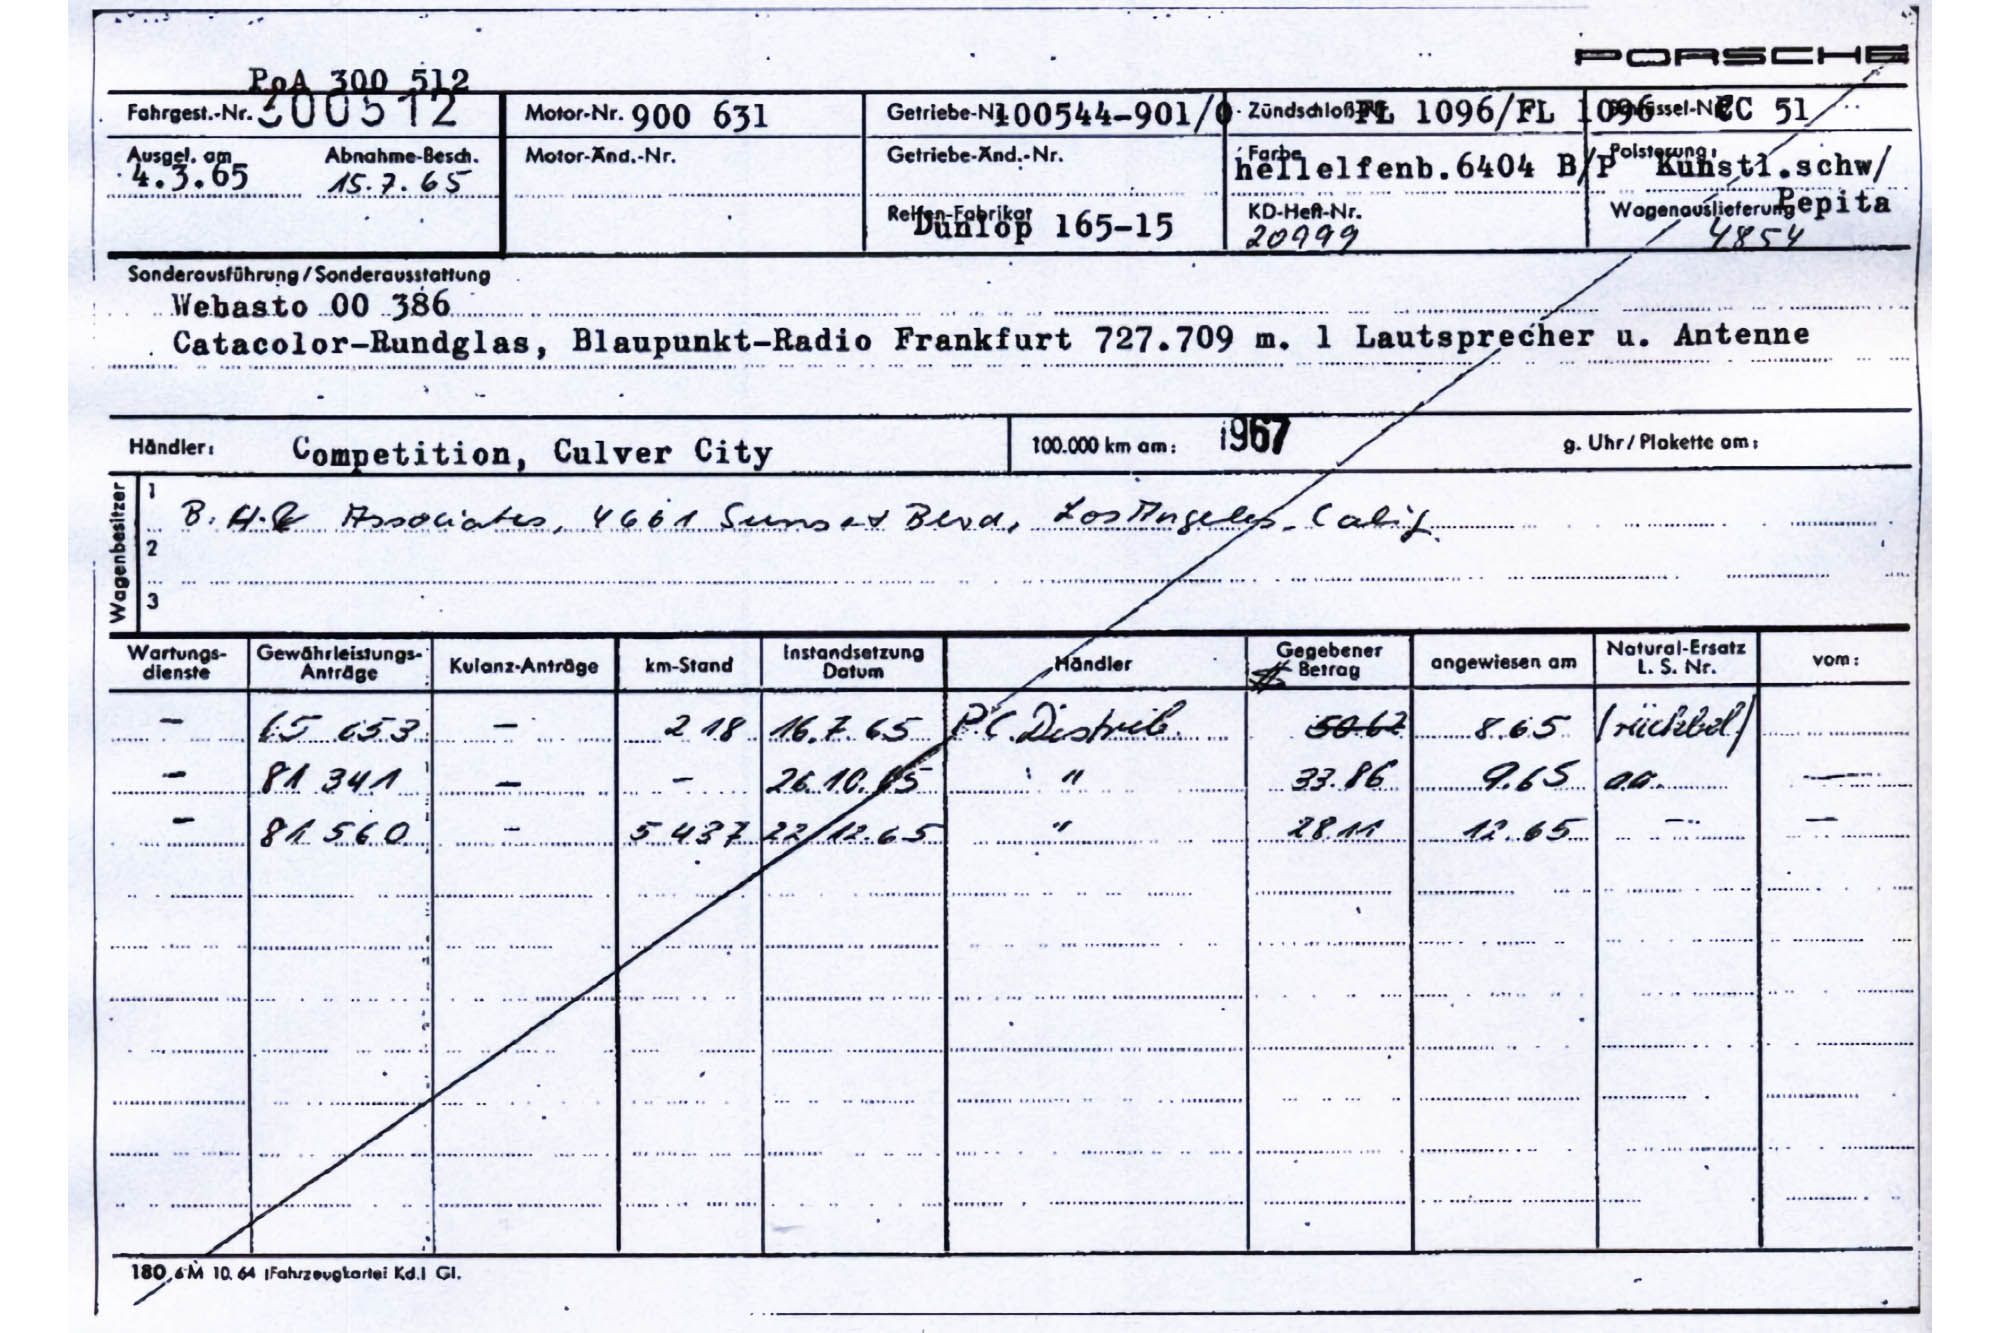 PORSCHE
PoA 300 512
Fahrgest.-Nr. 300512 Motor-Nr. 900 631 Getriebe-Nr. 100544-901/0 Zündschloß-Nr. FL 1096/FL 1096 Schlüssel-Nr. CC 51
Ausgel. am Abnahme-Besch. Motor-Änd.-Nr. Getriebe-Änd.-Nr. Farbe Polsterung:
4.3.65 15.7.65 hellelfenb.6404 B/P Kunstl.schw/
Reifen-Fabrikat Dunlop 165-15 KD-Heft-Nr. Wagenauslieferung Pepita
20999 4854
Sonderausführung/Sonderausstattung
Webasto 00 386
Catacolor-Rundglas, Blaupunkt-Radio Frankfurt 727.709 m. 1 Lautsprecher u. Antenne
Händler: Competition, Culver City 100.000 km am: 1967 g. Uhr/Plakette am:
Wagenbesitzer
1 B. H. Associates, 4661 Sunset Blvd, Los Angeles, Calif.
2
3
Wartungs-dienste Gewährleistungs-Anträge Kulanz-Anträge km-Stand Instandsetzung Datum Händler Gegebener $ Betrag angewiesen am Natural-Ersatz L. S. Nr. vom:
– 65 653 – 218 16.7.65 P.C. Distrib. 50.62 8.65 (rückbel)
– 81 341 – – 26.10.65 " 33.86 9.65 a.a. —
– 81 560 – 5 437 22.12.65 " 28.11 12.65 – –
180 6M 10.64 (Fahrzeugkartei Kd.) Gl.